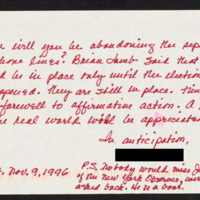 will you be abandoning the sep
hone lines? Brian Lamb said that
d be in place only until the election
ppened. They are still in place. Tim
farewell to affirmative action. A
e real world will be appreciated
In anticipation,
Nov. 9, 1996
P.S. Nobody would miss
of the New York Observer,
asked back. He is a bore.